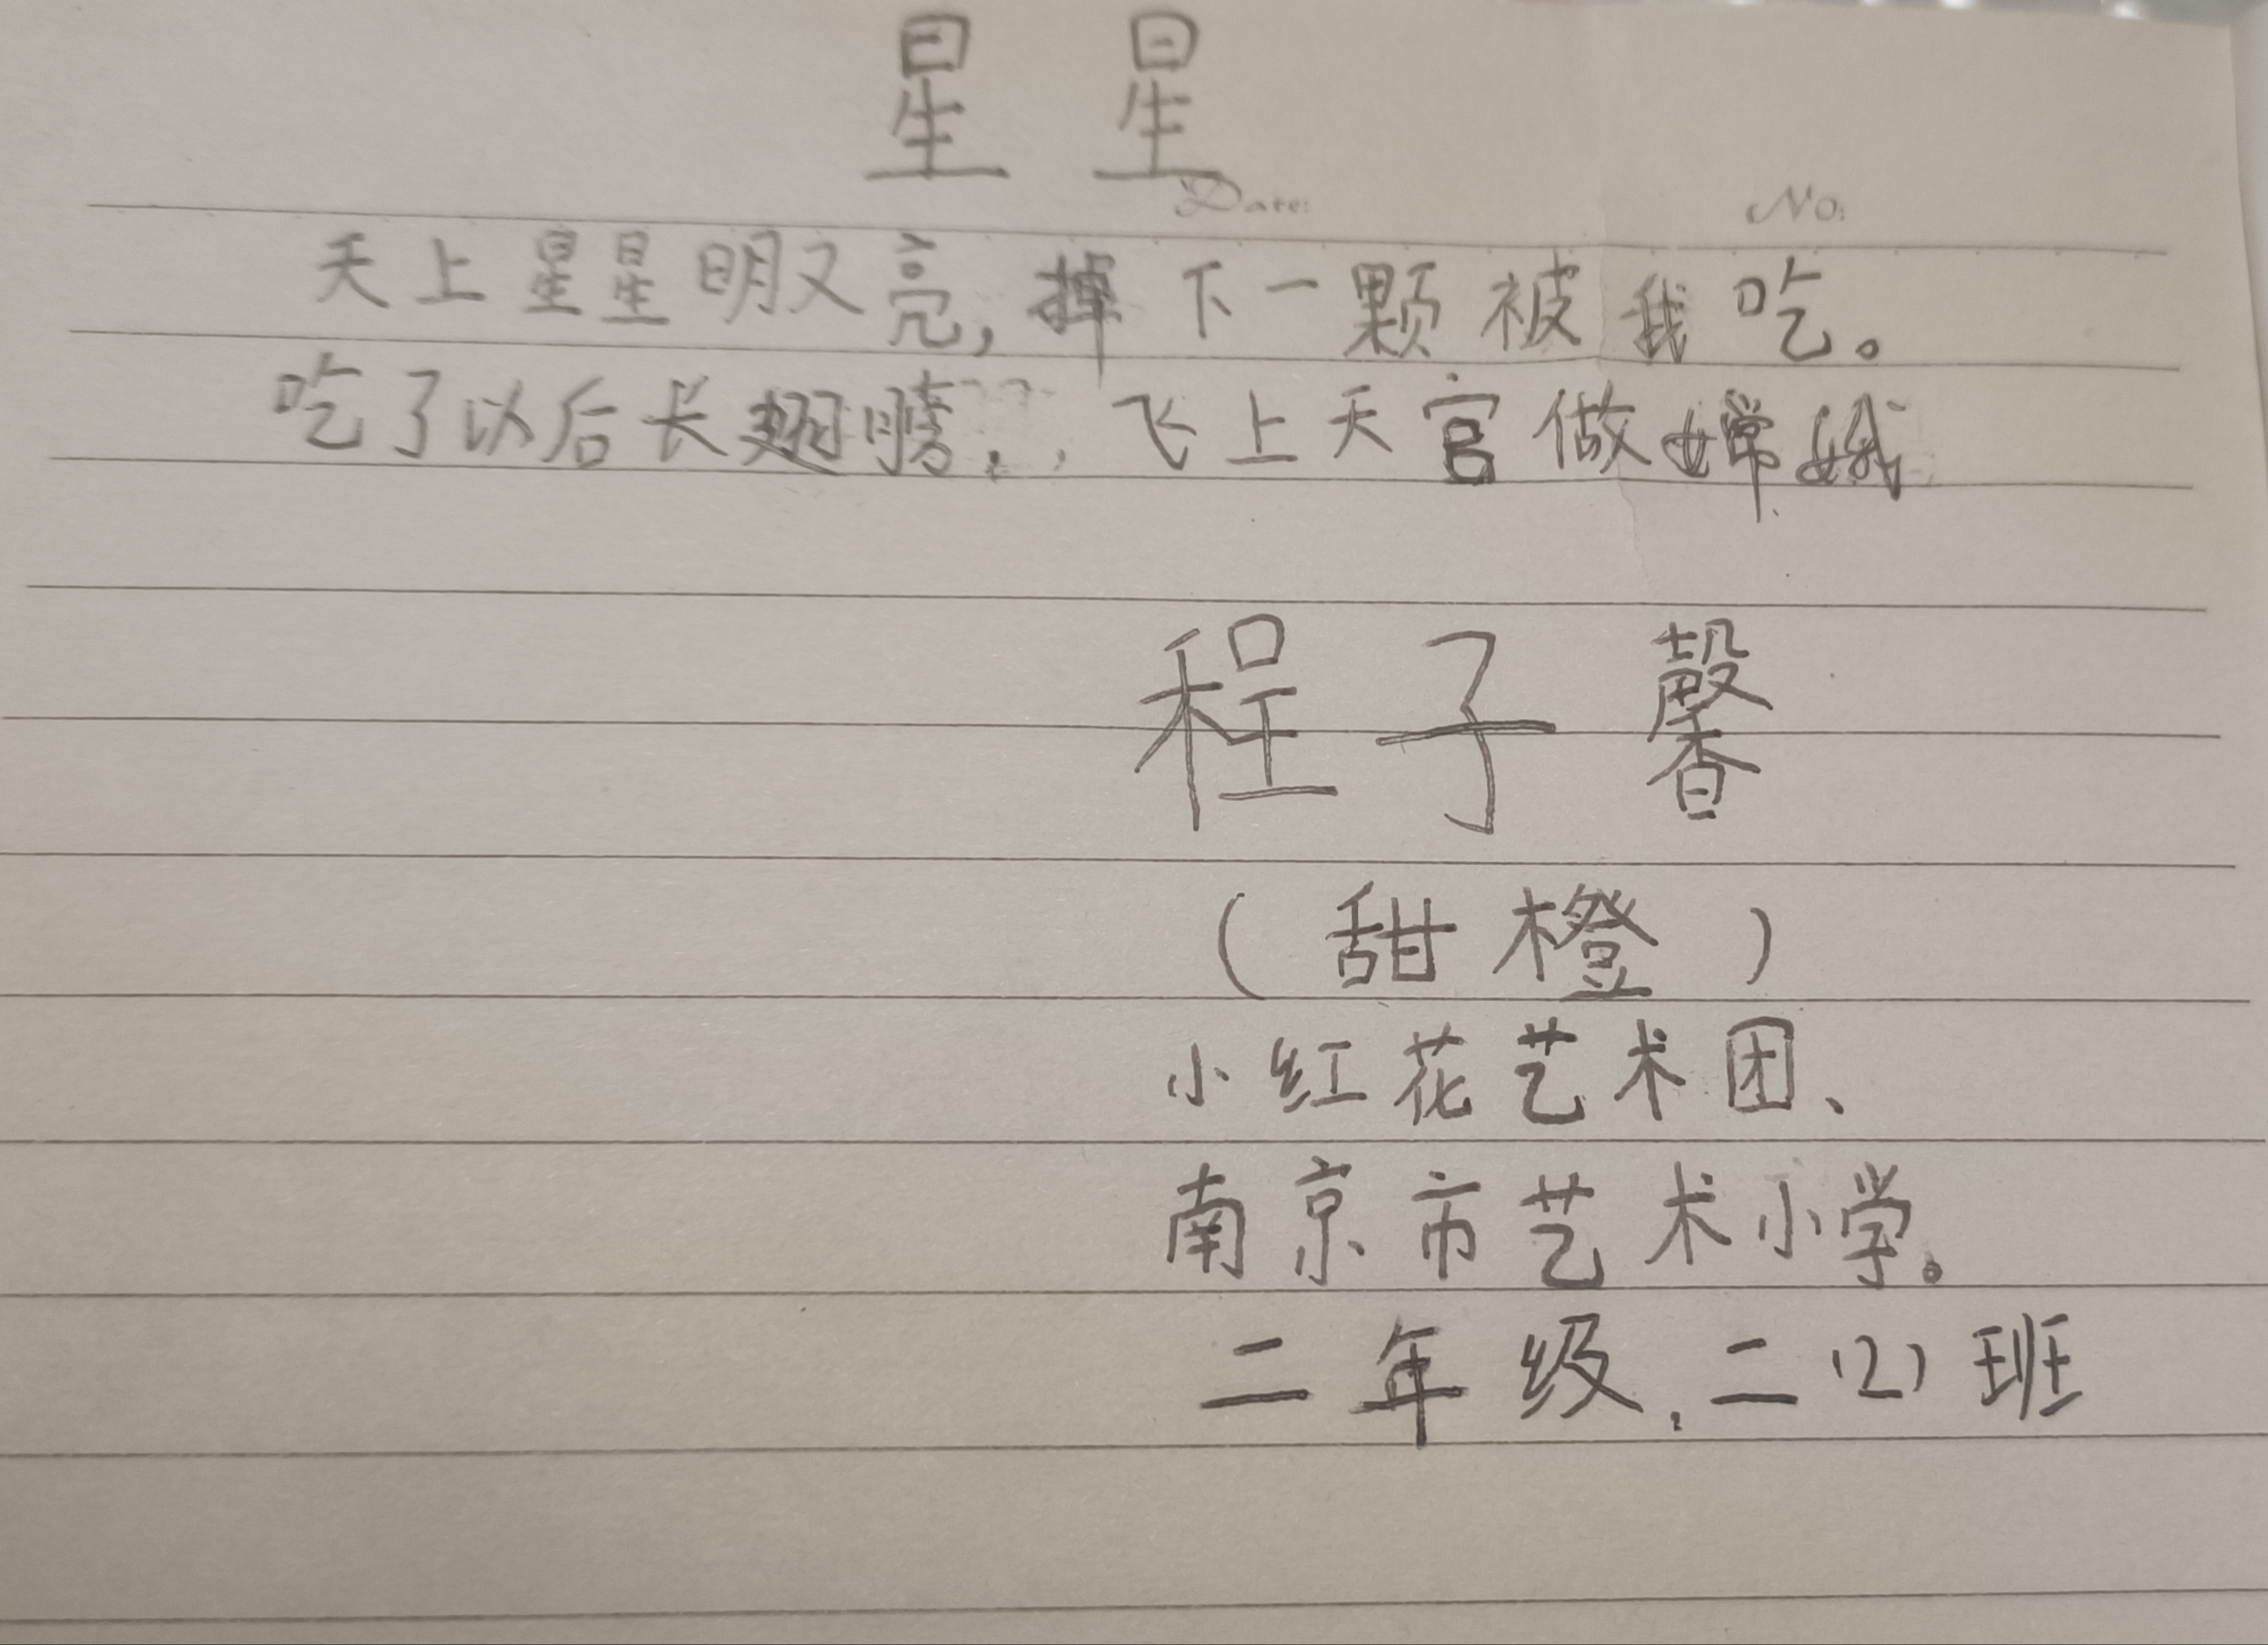 星星
Date: No:
天上星星明又亮,掉下一颗被我吃。
吃了以后长翅膀,飞上天官做嫦娥
程子馨
(甜橙)
小红花艺术团、
南京市艺术小学。
二年级,二(2)班